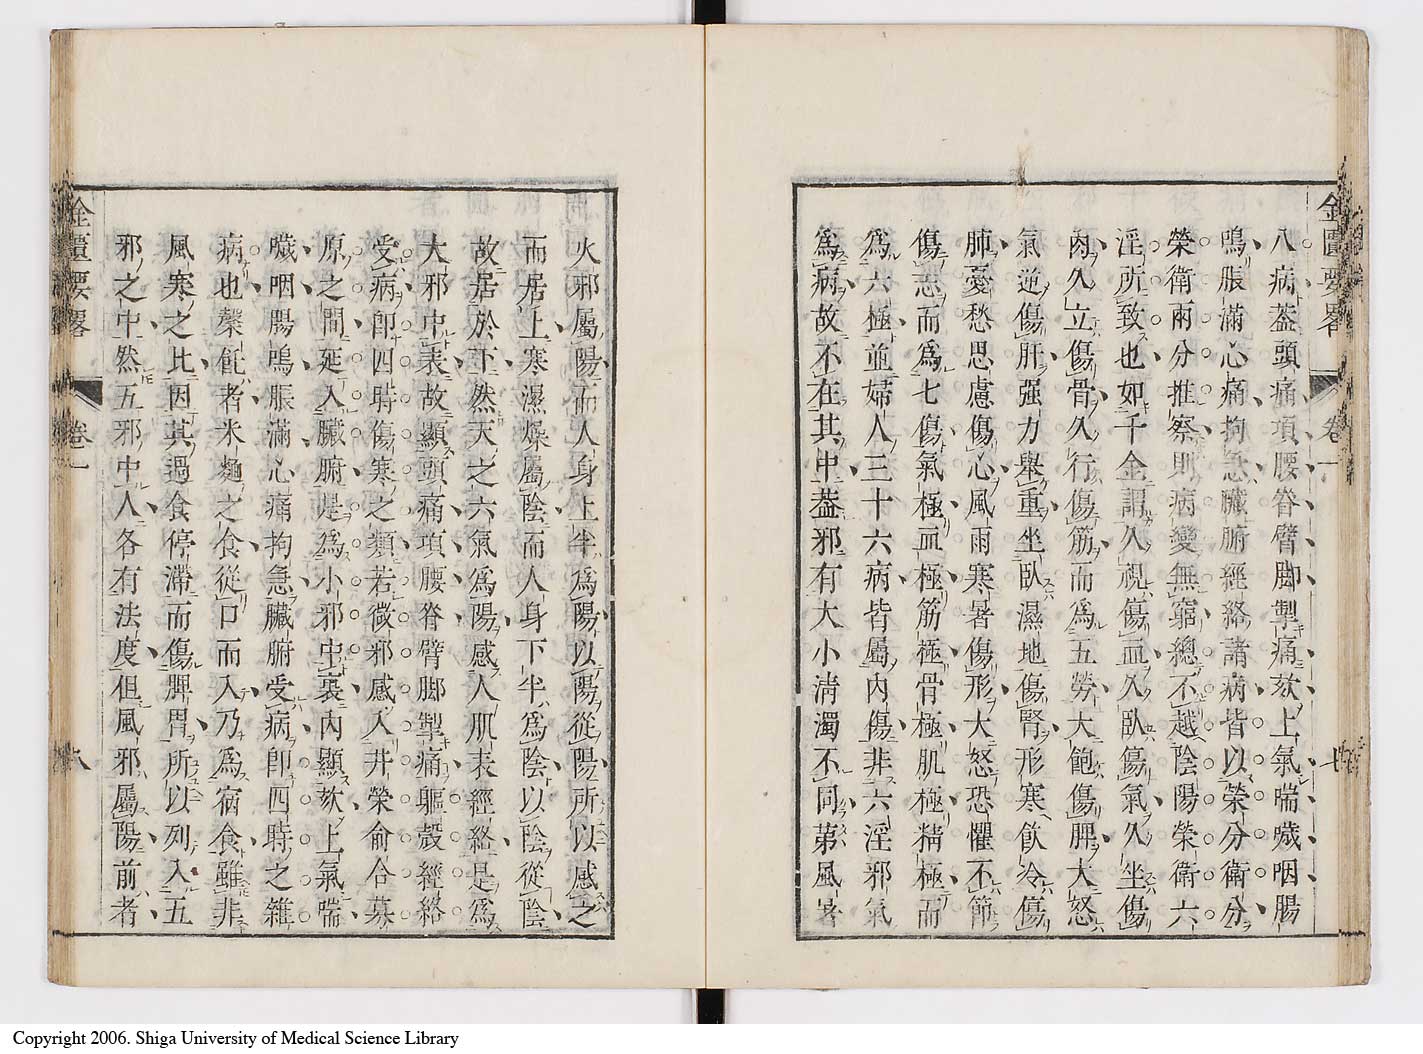 金匱要畧
卷一
七
八病葢頭痛項腰脊臂脚掣痛欬上氣喘噦咽腸
鳴脹滿心痛拘急臟腑經絡諸病皆以榮分衛分
榮衛兩分推察則病變無窮總不越陰陽榮衛六
淫所致也如千金謂久視傷血久臥傷氣久坐傷
肉久立傷骨久行傷筋而爲五勞大飽傷脾大怒
氣逆傷肝强力舉重坐臥濕地傷腎形寒飲冷傷
肺憂愁思慮傷心風雨寒暑傷形大怒恐懼不節
傷志而爲七傷氣極血極筋極骨極肌極精極而
爲六極並婦人三十六病皆屬內傷非六淫邪氣
爲病故不在其中葢邪有大小清濁不同第風暑
火邪屬陽而人身上半爲陽以陽從陽所以感之
而居上寒濕燥屬陰而人身下半爲陰以陰從陰
故居於下然天之六氣爲陽感人肌表經絡是爲
大邪中表故顯頭痛項腰脊臂脚掣痛軀殼經絡
受病卽四時傷寒之類若微邪感入井榮俞合募
原之間延入臟腑是爲小邪中裏內顯欬上氣喘
噦咽腸鳴脹滿心痛拘急臟腑受病卽四時之雜
病也槃飪者米麵之食從口而入乃爲宿食雖非
風寒之比因其過食停滯而傷脾胃所以列入五
邪之中然五邪中人各有法度但風邪屬陽前者
金匱要畧
卷一
八
Copyright 2006. Shiga University of Medical Science Library